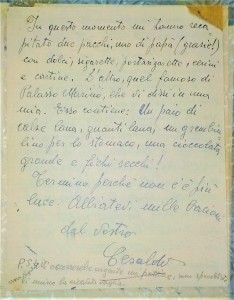 In questo momento mi hanno reca
pitato due pacchi, uno di papà (grazie!)
con dolci, sigarette, portasigarette, cerini
e cartine. L'altro, quel famoso di
Palazzo Marino, che vi dissi in una
mia. Esso contiene: Un paio di
calze lana, guanti lana, un grembiu
lino per lo stomaco, una cioccolata
grande e fichi secchi!
Termino perchè non c'è più
luce. Abbiatevi mille baci
dal vostro
Cesaldo
P.S.